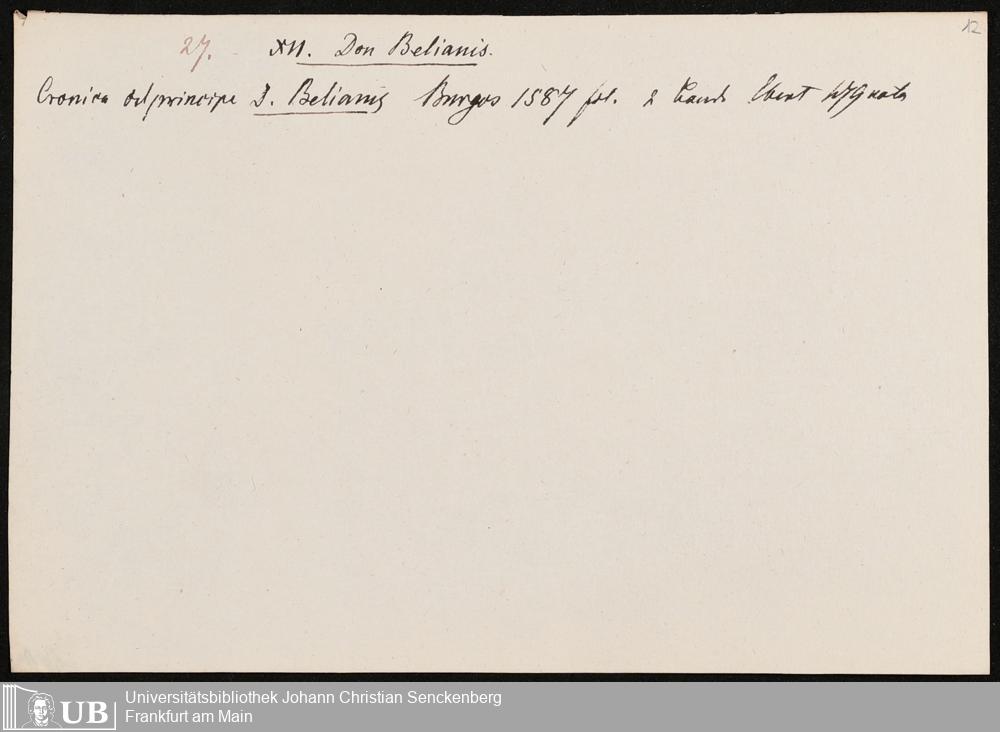 12
27. XII. Don Belianis.
Cronica del principe D. Belianis Burgos 1587 fol. 2 Bände Ebert
Universitätsbibliothek Johann Christian Senckenberg
UB Frankfurt am Main